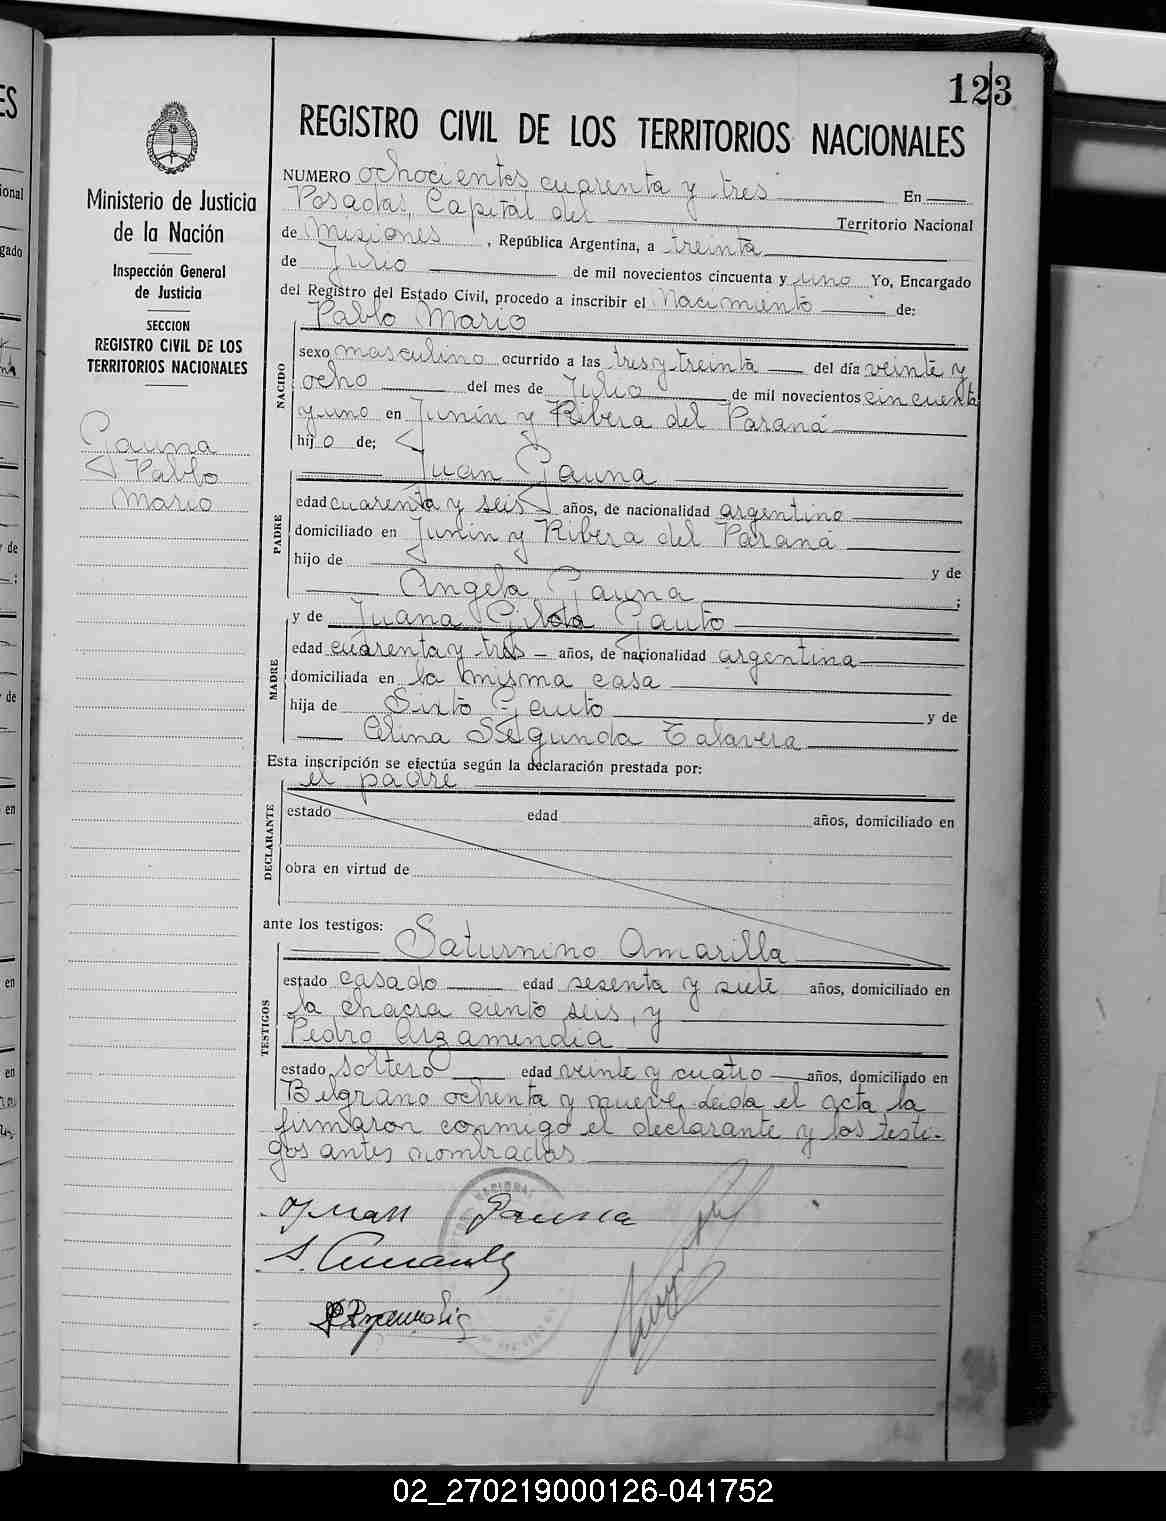 123
Ministerio de Justicia
de la Nación
Inspección General
de Justicia
SECCION
REGISTRO CIVIL DE LOS
TERRITORIOS NACIONALES
Gauna
Pablo
Mario
REGISTRO CIVIL DE LOS TERRITORIOS NACIONALES
NUMERO ochocientos cuarenta y tres En
Posadas, Capital del Territorio Nacional
de Misiones, República Argentina, a treinta
de Julio de mil novecientos cincuenta y uno Yo, Encargado
del Registro del Estado Civil, procedo a inscribir el Nacimiento de:
Pablo Mario
NACIDO
sexo masculino ocurrido a las tres y treinta del día veinte y
ocho del mes de Julio de mil novecientos cincuenta
y uno en Junín y Ribera del Paraná
hijo de;
Juan Gauna
PADRE
edad cuarenta y seis años, de nacionalidad argentino
domiciliado en Junin y Ribera del Paraná
hijo de y de
Angela Gauna ;
y de Juana Gauto
MADRE
edad cuarenta y tres años, de nacionalidad argentina
domiciliada en la misma casa
hija de Sixto Gauto y de
Segunda Talavera
Esta inscripción se efectúa según la declaración prestada por:
el padre
DECLARANTE
estado edad años, domiciliado en
obra en virtud de
ante los testigos:
Saturnino Amarilla
TESTIGOS
estado casado edad sesenta y siete años, domiciliado en
la chacra ciento seis, y
Pedro Arzamendia
estado soltero edad veinte y cuatro años, domiciliado en
Belgrano ochenta y nueve. Leida el acta la
firmaron conmigo el declarante y los testi-
gos antes nombrados
Juan Gauna
02_270219000126-041752